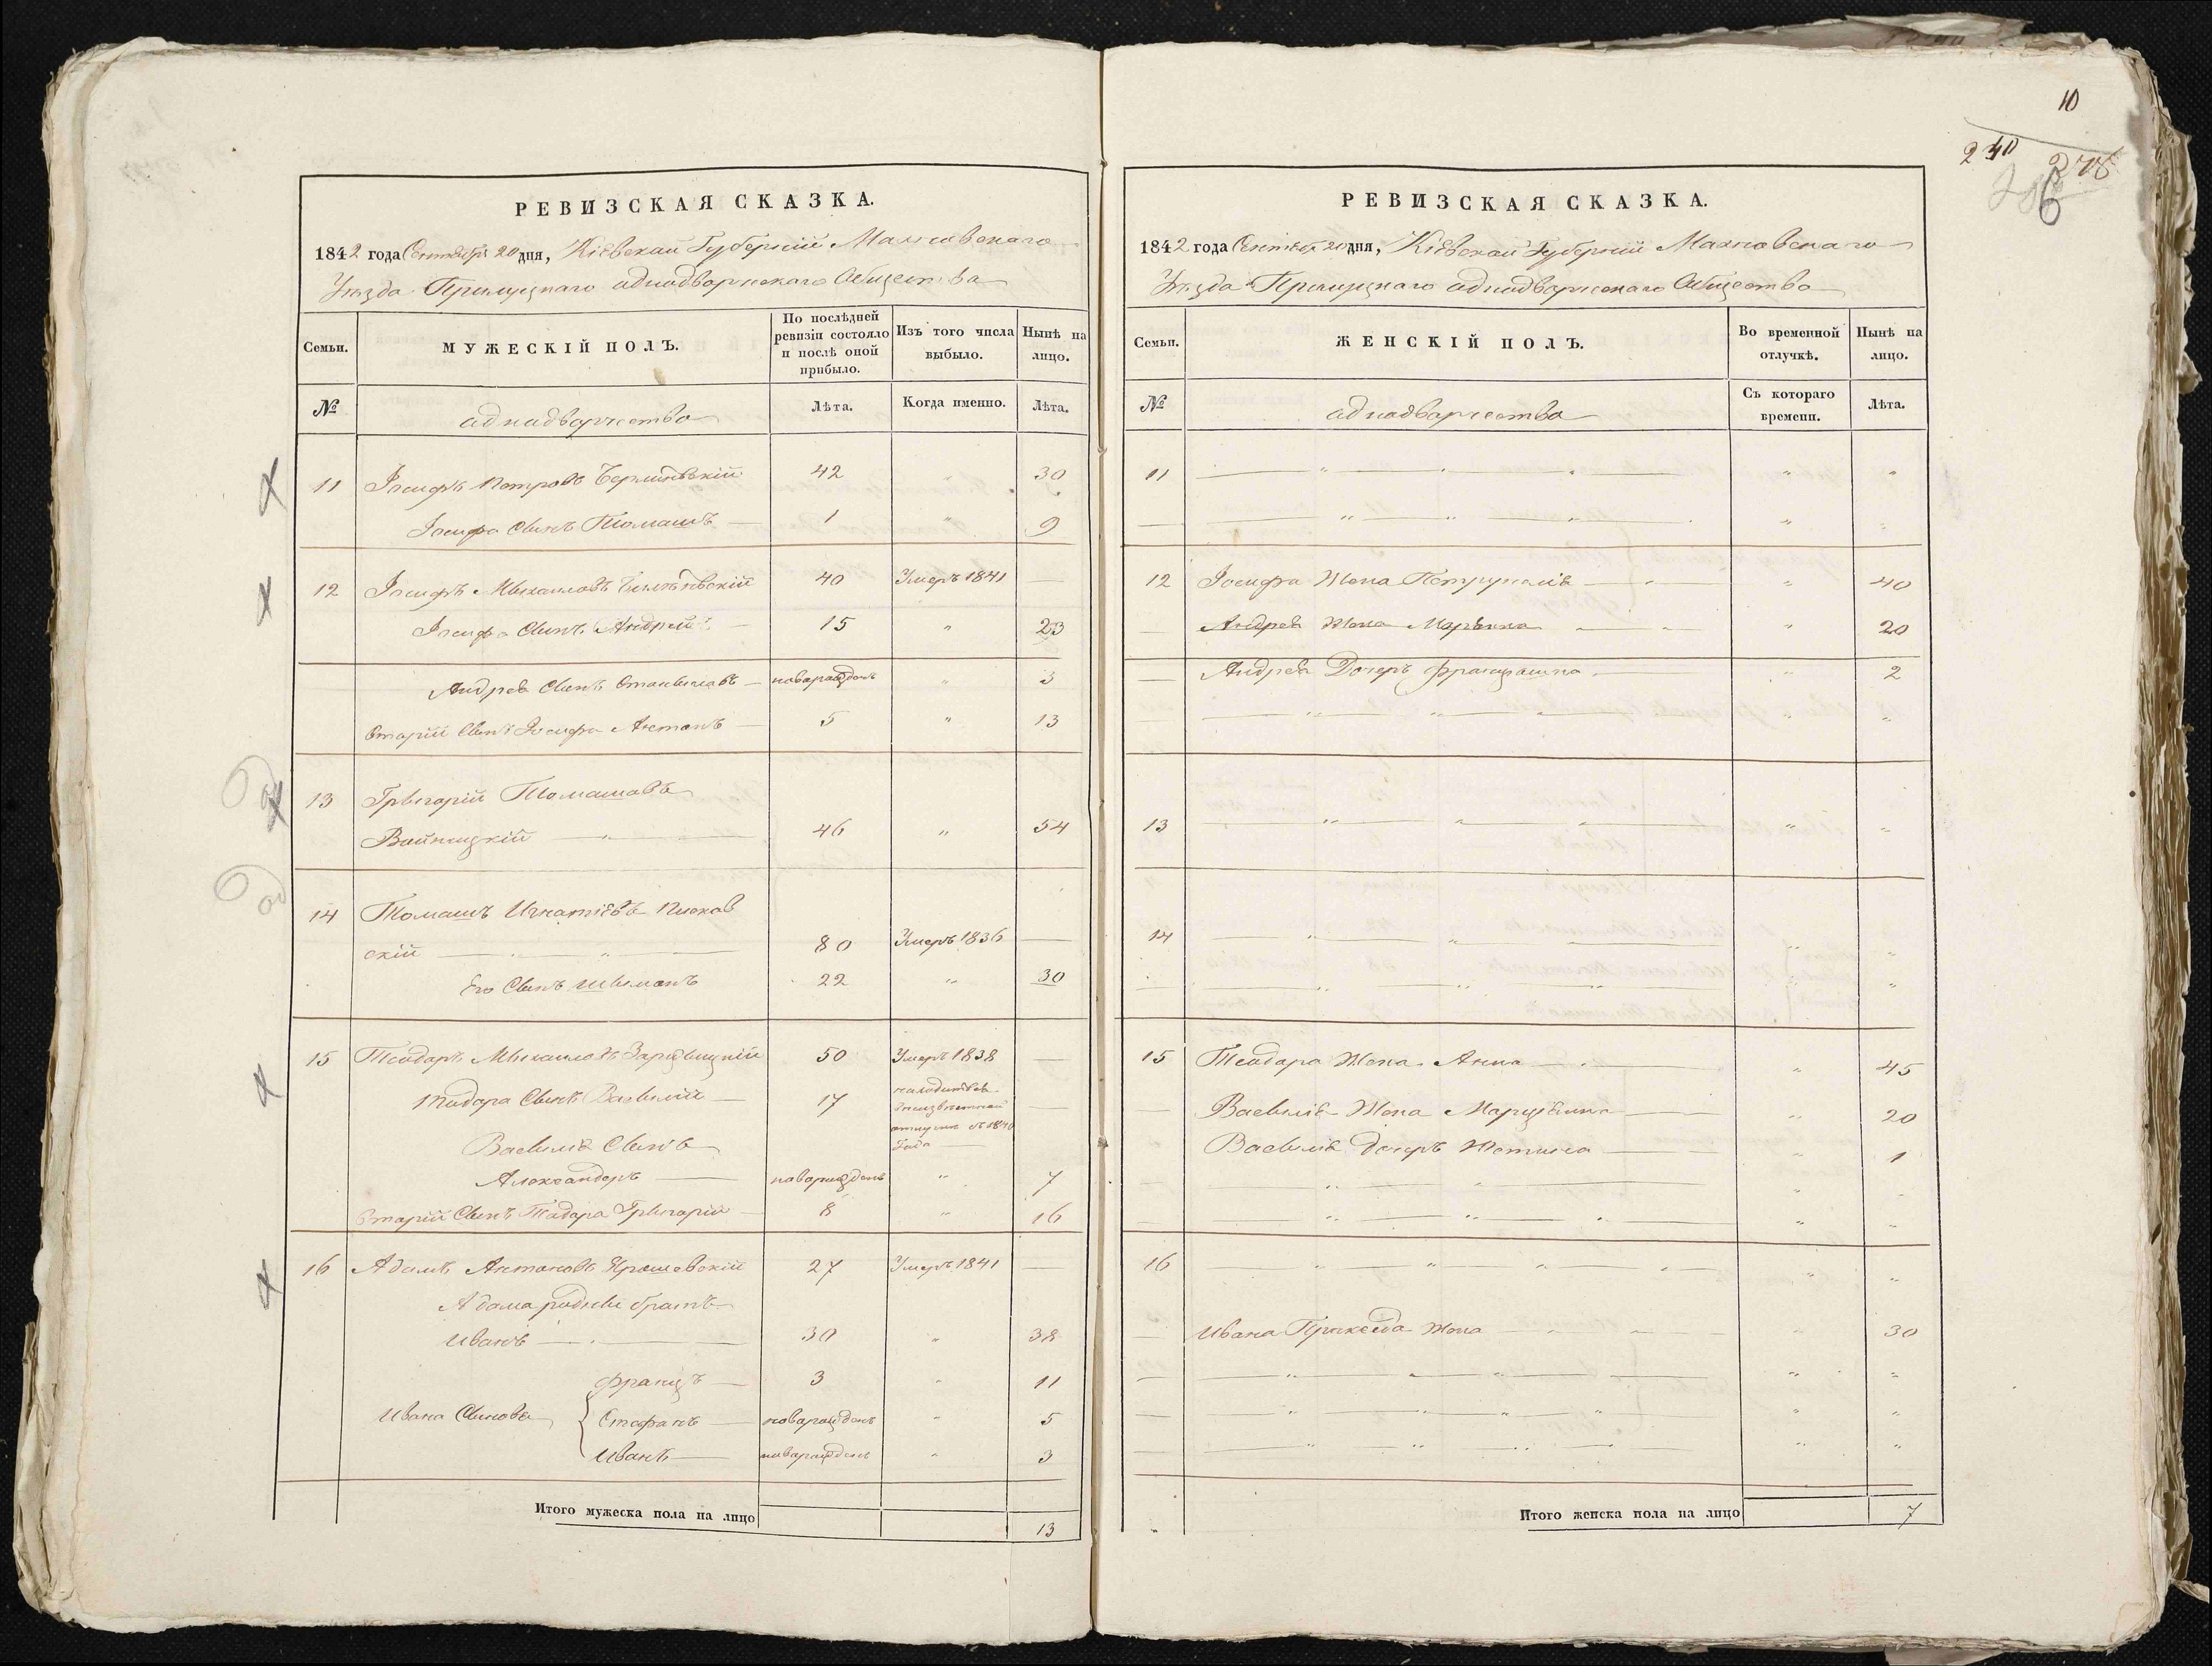 10
240
278
6
РЕВИЗСКАЯ СКАЗКА.
1842 года Сентября 20 дня, Кіевской Губерніи Махновскаго
Уезда Прилуцкаго аднадворческаго Общества
Семьи.
МУЖЕСКІЙ ПОЛЪ.
По послѣдней ревизіи состояло и послѣ оной прибыло.
Изъ того числа выбыло.
Нынѣ на лицо.
№
аднадворчества
Лѣта.
Когда именно.
Лѣта.
11 Іосифъ Петровъ 42 " 30
Іосифа Сынъ Томашъ 1 " 9
12 Іосифъ Михаиловъ 40 Умеръ 1841 —
Іосифа Сынъ Андрей 15 " 23
Андрея Сынъ Станиславъ новарожденъ " 3
Вторій Сынъ Іосифа Антонъ 5 " 13
13 Григорій Томашовъ
Войницкій 46 " 54
14 Томашъ Игнатіевъ Писков
скій 80 Умеръ 1836 —
Его Сынъ Шимонъ 22 " 30
15 Теодоръ Михаиловъ 50 Умеръ 1838 —
Тиодора Сынъ Василій 17 находится
в неизвестной
отлучке съ 1840
Года —
Василія Сынъ
Александеръ новарожденъ " 7
Вторій Сынъ Теодора Григорій 8 " 16
16 Адамъ Антоновъ Ярошевскій 27 Умеръ 1841 —
Адама родный братъ
Иванъ 30 " 38
Францъ 3 " 11
Ивана Синовья { Стефанъ новарожденъ " 5
Иванъ новарожденъ " 3
Итого мужеска пола на лицо 13
РЕВИЗСКАЯ СКАЗКА.
1842 года Сентября 20 дня, Кіевской Губерніи Махновскаго
Уезда Прилуцкаго аднадворческаго Общества
Семьи.
ЖЕНСКІЙ ПОЛЪ.
Во временной отлучкѣ.
Нынѣ на лицо.
№
аднадворчества
Съ котораго времени.
Лѣта.
11 — " — " — " — " "
— " — " — " — " "
12 Іосифа Жена Петрунелія " 40
— Андрея Жена Марьяна " 20
— Андрея Дочерь Францишка " 2
— " — " — " — " "
13 — " — " — " — " "
14 — " — " — " — " "
— " — " — " — " "
15 Теодора Жена Анна " 45
— Василія Жена Марцѣлина " 20
Василія Дочерь Юстина " 1
— " — " — " "
— " — " — " — " "
16 " — " — " — " — " "
— Ивана Пракседа Жена " 30
— " — " — " — " "
— " — " — " — " "
— " — " — " — " "
Итого женска пола на лицо 7